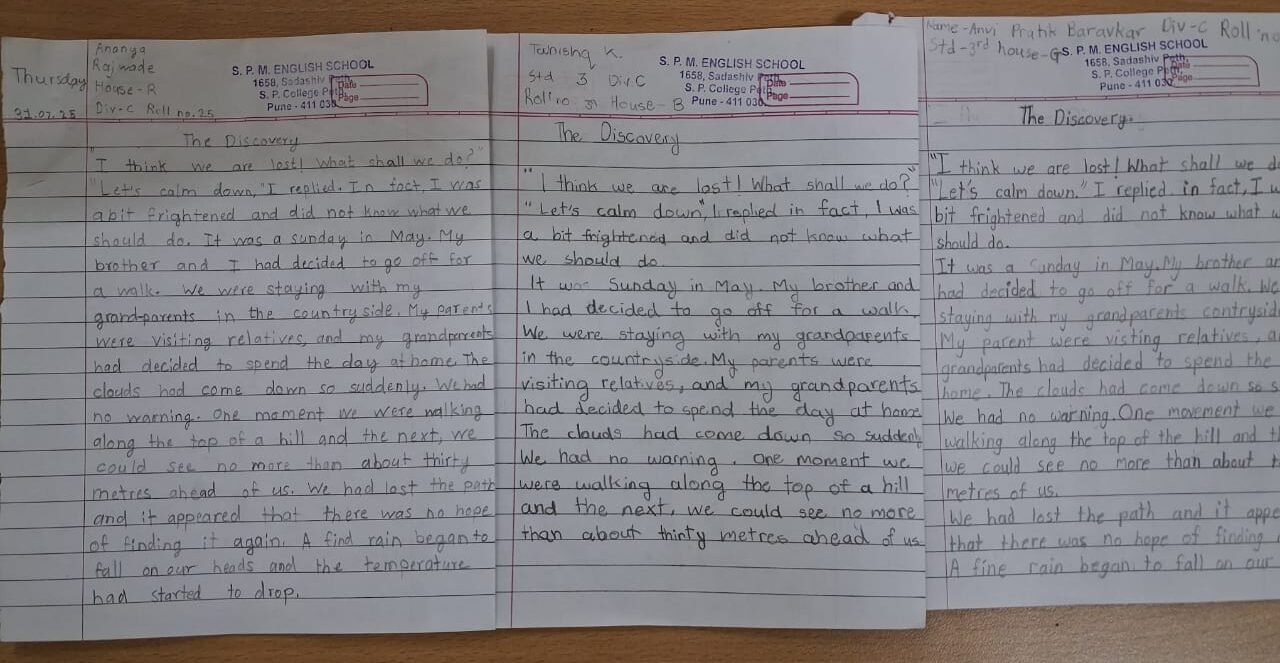 Ananya
Rajwade
House - R
Div-C Roll no. 25
Thursday
31.07.25
S. P. M. ENGLISH SCHOOL
1658, Sadashiv Peth,
S. P. College P
Pune - 411 030
Date
Page
The Discovery
"I think we are lost! What shall we do?"
"Let's calm down," I replied. In fact, I was
a bit frightened and did not know what we
should do. It was a sunday in May. My
brother and I had decided to go off for
a walk. We were staying with my
grandparents in the countryside. My parents
were visiting relatives, and my grandparents
had decided to spend the day at home. The
clouds had come down so suddenly. We had
no warning. One moment we were walking
along the top of a hill and the next, we
could see no more than about thirty
metres ahead of us. We had lost the path
and it appeared that there was no hope
of finding it again. A find rain began to
fall on our heads and the temperature
had started to drop.
Tanishq K.
Std 3 Div.C
Roll no 31 House - B
S. P. M. ENGLISH SCHOOL
1658, Sadashiv Peth,
S. P. College P
Pune - 411 030
Date
Page
The Discovery
"I think we are lost! What shall we do?"
"Let's calm down", I replied in fact, I was
a bit frightened and did not know what
we should do.
It was Sunday in May. My brother and
I had decided to go off for a walk.
We were staying with my grandparents
in the countryside. My parents were
visiting relatives, and my grandparents
had decided to spend the day at home
The clouds had come down so suddenly
We had no warning. One moment we
were walking along the top of a hill
and the next, we could see no more
than about thirty metres ahead of us
Name - Anvi Pratik Baravkar Div-C Roll no
Std - 3rd house - G
S. P. M. ENGLISH SCHOOL
1658, Sadashiv Peth,
S. P. College P
Pune - 411 030
Date
Page
The Discovery.
"I think we are lost! What shall we do
"Let's calm down." I replied in fact, I w
bit frightened and did not know what
should do.
It was a Sunday in May. My brother an
had decided to go off for a walk. We
staying with my grandparents contryside
My parent were visting relatives, a
grandparents had decided to spend the
home. The clouds had come down so s
We had no warning. One movement we
walking along the top of the hill and th
we could see no more than about
metres of us.
We had lost the path and it appe
that there was no hope of finding
A fine rain began to fall on our